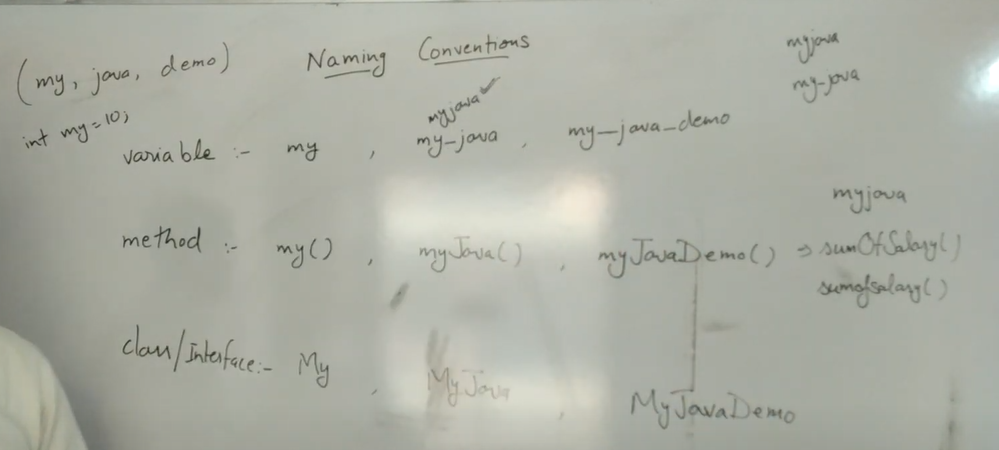 (my, java, demo) Naming Conventions
myjava
my-java
int my=10;
myjava ✓
variable :- my , my-java , my-java-demo
myjava
method :- my() , myJava() , myJavaDemo() → sumOfSalary()
sumofsalary()
class/Interface:- My , MyJava , MyJavaDemo